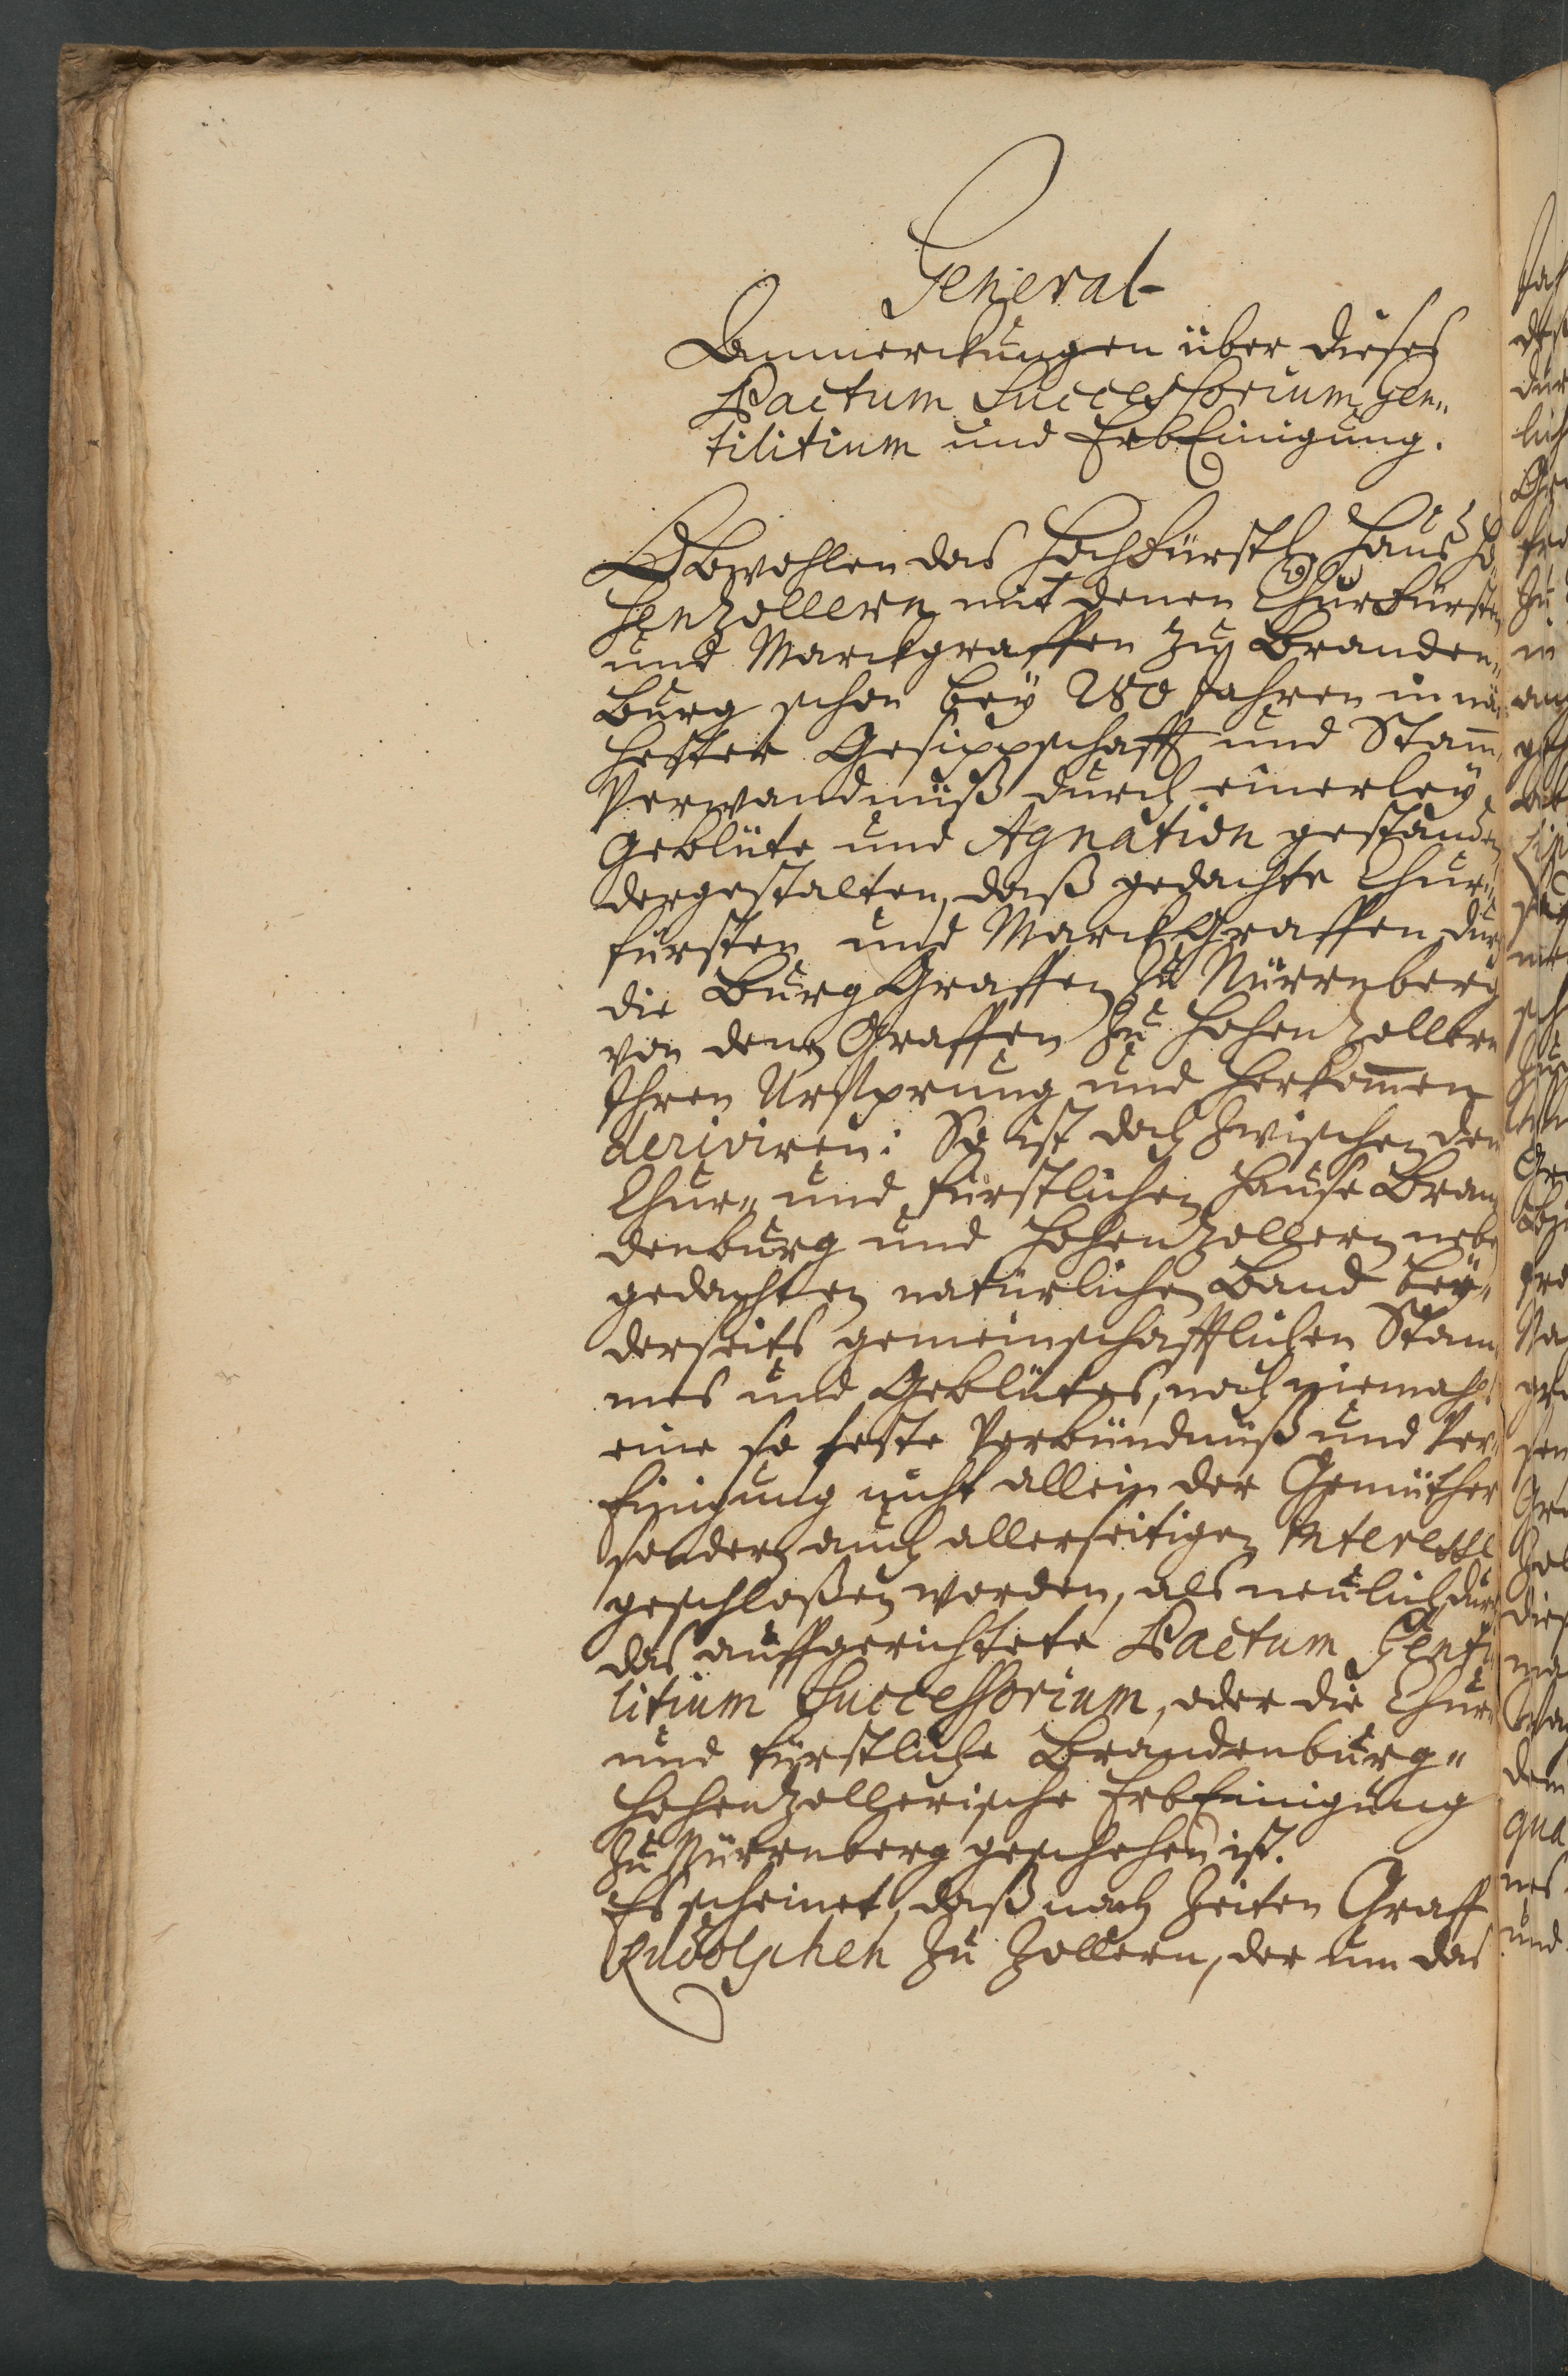 General-
Anmerckungen über dieses
Pactum Successorium Gen„
tilitium und ErbEinigung.
Obwohlen das Hochfürstl. Hauß Ho„
henzollern mit denen Churfürsten
und Marckgraffen zu Branden„
burg schon bey 280 Jahren in nä„
hester Gesippschafft und Stam„
Verwandnuß durch einerley
Geblüte und Agnation gestanden
dergestalten, daß gedachte Chur„
fürsten und MarckGraffen durch
die BurgGraffen zu Nürrnberg
von denen Graffen zu Hohenzollern
Ihren Ursprung und Herkommen
deriviren: So ist doch zwischen den
Chur„ und Fürstlichen Hause Bran
denburg und Hohenzollern neben
gedachten natürlichen Band bey„
derseits gemeinschafftlichen Stam„
mes und Geblütes, noch niemahls
eine so feste Verbündnuß und Ver„
Einigung nicht allein der Gemüther
sondern auch allerseitigen Interesse
geschloßen worden, als neulich durch
das auffgerichtete Pactum Genti
litium Successorium, oder die Chur„
und Fürstliche Brandenburg„
Hohenzollerische ErbEinigung
zu Nürrnberg geschehen ist.
Es scheinet, daß nach Zeiten Graff
Rudolphen zu Zollern, der um das